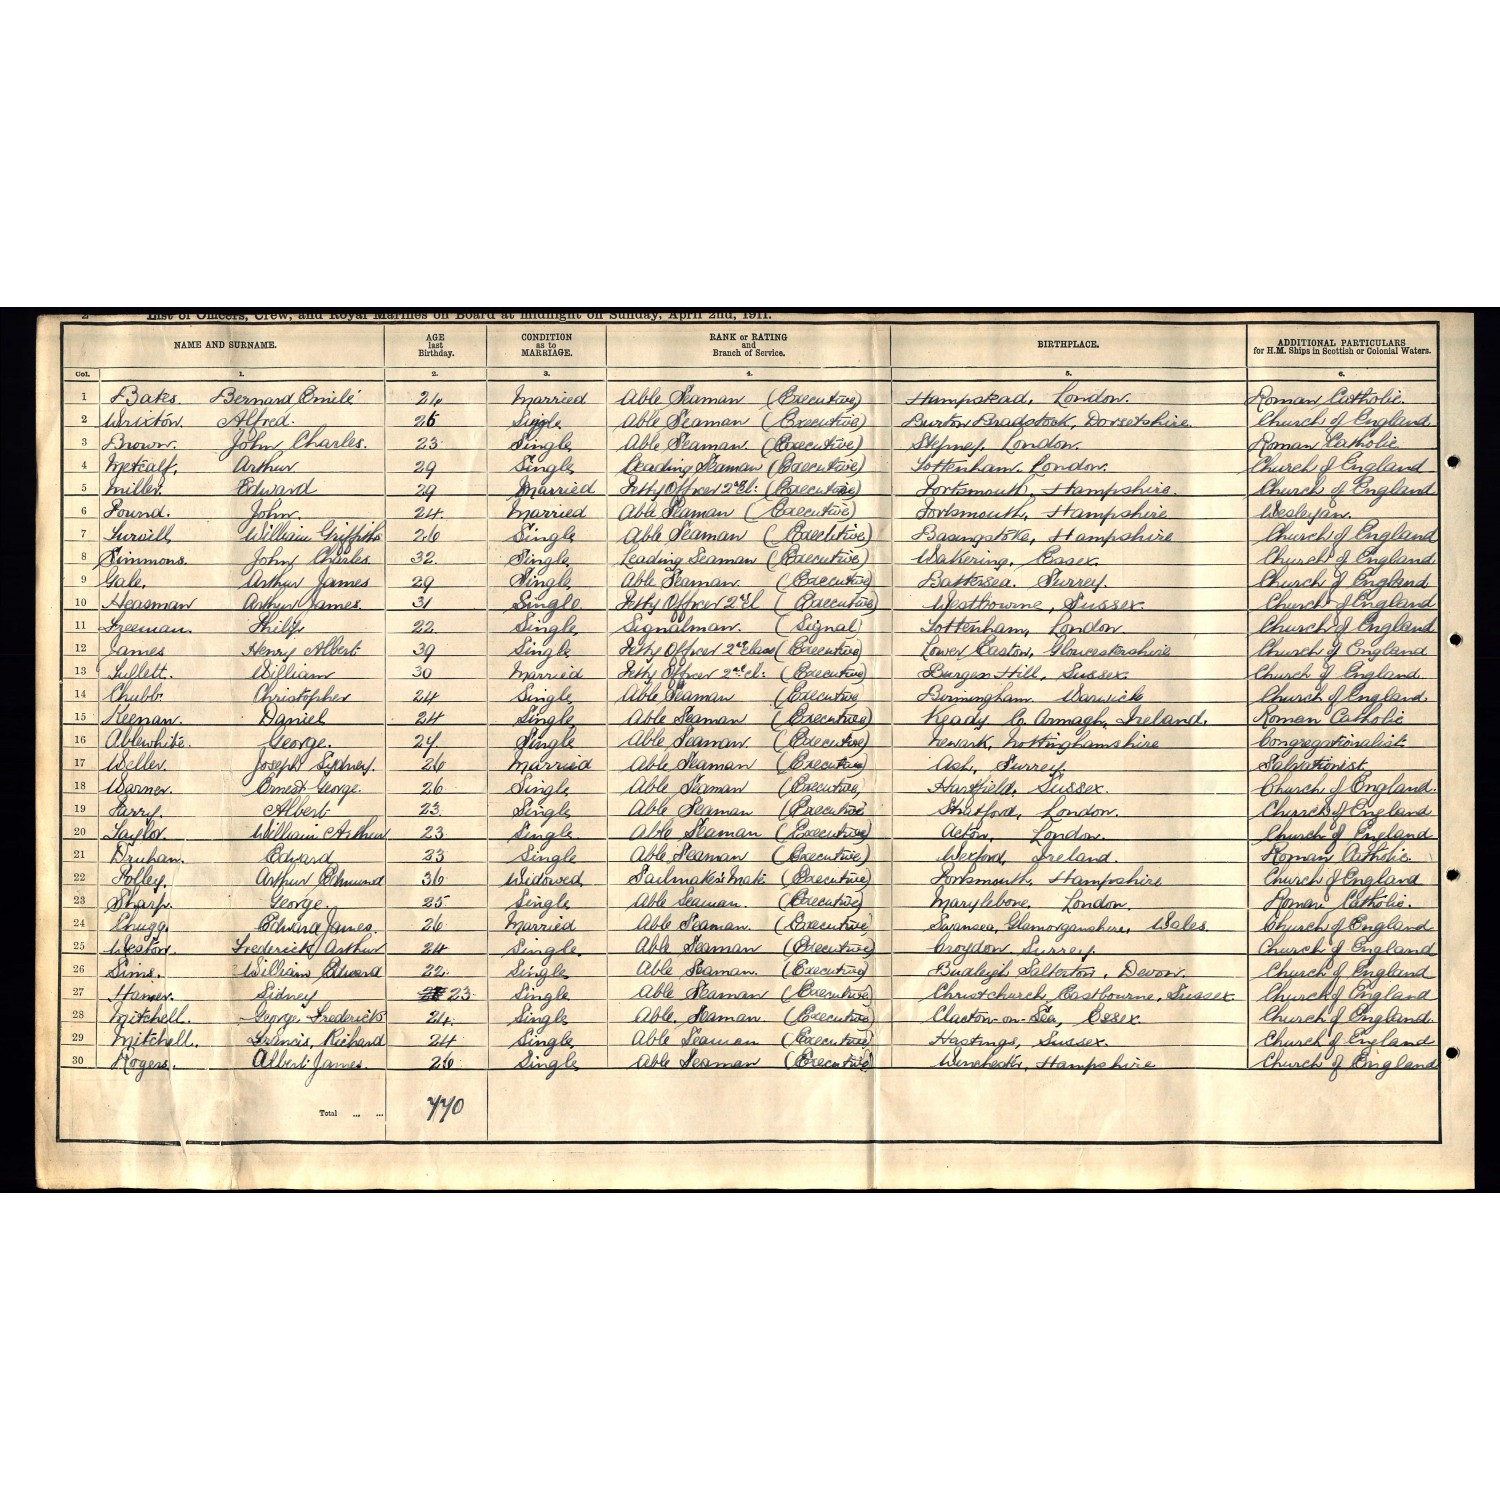 2 List of Officers, Crew, and Royal Marines on Board at midnight on Sunday, April 2nd, 1911.
NAME AND SURNAME. AGE last Birthday. CONDITION as to MARRIAGE. RANK or RATING and Branch of Service. BIRTHPLACE. ADDITIONAL PARTICULARS for H.M. Ships in Scottish or Colonial Waters.
Col. 1. 2. 3. 4. 5. 6.
1 Bates. Bernard Emile Married Able Seaman (Executive) Hampstead, London. Roman Catholic.
2 Wrixton. Alfred. Single Able Seaman (Executive) Burton Bradstock, Dorsetshire Church of England
3 Brown. John Charles. 23 Single Able Seaman. (Executive) Stepney, London. Roman Catholic
4 Metcalf, Arthur 29 Single Leading Seaman (Executive) Tottenham. London. Church of England
5 Miller. Edward 29 Married Petty Officer 2nd Cl: (Executive) Portsmouth, Hampshire. Church of England
6 Pound. John. 24. Married Able Seaman (Executive) Portsmouth, Hampshire Wesleyan.
7 William Griffiths 26 Single Able Seaman (Executive) Basingstoke, Hampshire Church of England
8 Simmons. John Charles. 32. Single Leading Seaman (Executive) Wakering, Essex. Church of England
9 Gale. Arthur James 29 Single Able Seaman. (Executive) Battersea. Surrey. Church of England
10 Heasman Arthur James. 31 Single Petty Officer 2nd Cl (Executive) Westbourne, Sussex. Church of England
11 Freeman. Philip 22. Single Signalman. (Signal) Tottenham, London. Church of England
12 James Henry Albert 39 Single Petty Officer 2nd Class (Executive) Lower Easton, Gloucestershire Church of England
13 Tullett. William 30 Married Petty Officer 2nd Cl: (Executive) Burgess Hill, Sussex. Church of England.
14 Chubb. Christopher 24 Single Able Seaman (Executive Birmingham. Warwick Church of England.
15 Keenan. Daniel 24 Single Able Seaman (Executive) Keady Co. Armagh, Ireland. Roman Catholic
16 Ablewhite. George. Single Able Seaman. (Executive) Newark, Nottinghamshire Congregationalist
17 Weller. Joseph Sydney. 26 Married Able Seaman (Executive) Ash, Surrey Salvationist
18 Warner. Ernest George. 26 Single Able Seaman (Executive) Hartfield, Sussex. Church of England.
19 Parry. Albert 23. Single Able Seaman (Executive Stratford, London. Church of England
20 Taylor. William Arthur 23 Single Able Seaman (Executive) Acton, London. Church of England
21 Druhan. Edward 23 Single Able Seaman (Executive) Wexford, Ireland. Roman Catholic.
22 Polley, Arthur Edmund 36 Widowed Sailmaker's Mate (Executive) Portsmouth, Hampshire Church of England
23 Sharp. George. 25 Single Able Seaman. (Executive Marylebone, London. Roman Catholic.
24 Chugg. Edward James. 26 Married Able Seaman. (Executive Swansea, Glamorganshire, Wales Church of England
25 Weston. Frederick Arthur 24 Single. Able Seaman (Executive) Croydon, Surrey. Church of England
26 Sims. William Edward 22. Single Able Seaman. (Executive) Budleigh Salterton, Devon. Church of England
27 Hamer. Sidney 23 Single Able Seaman (Executive) Christchurch, Eastbourne, Sussex Church of England
28 Mitchell. George, Frederick 24. Single Able. Seaman. (Executive) Clacton-on-Sea, Essex. Church of England
29 Mitchell. Francis, Richard 24 Single. Able Seaman (Executive) Hastings, Sussex. Church of England
30 Rogers. Albert James. 26 Single Able Seaman (Executive) Winchester, Hampshire Church of England
Total ... ... 770